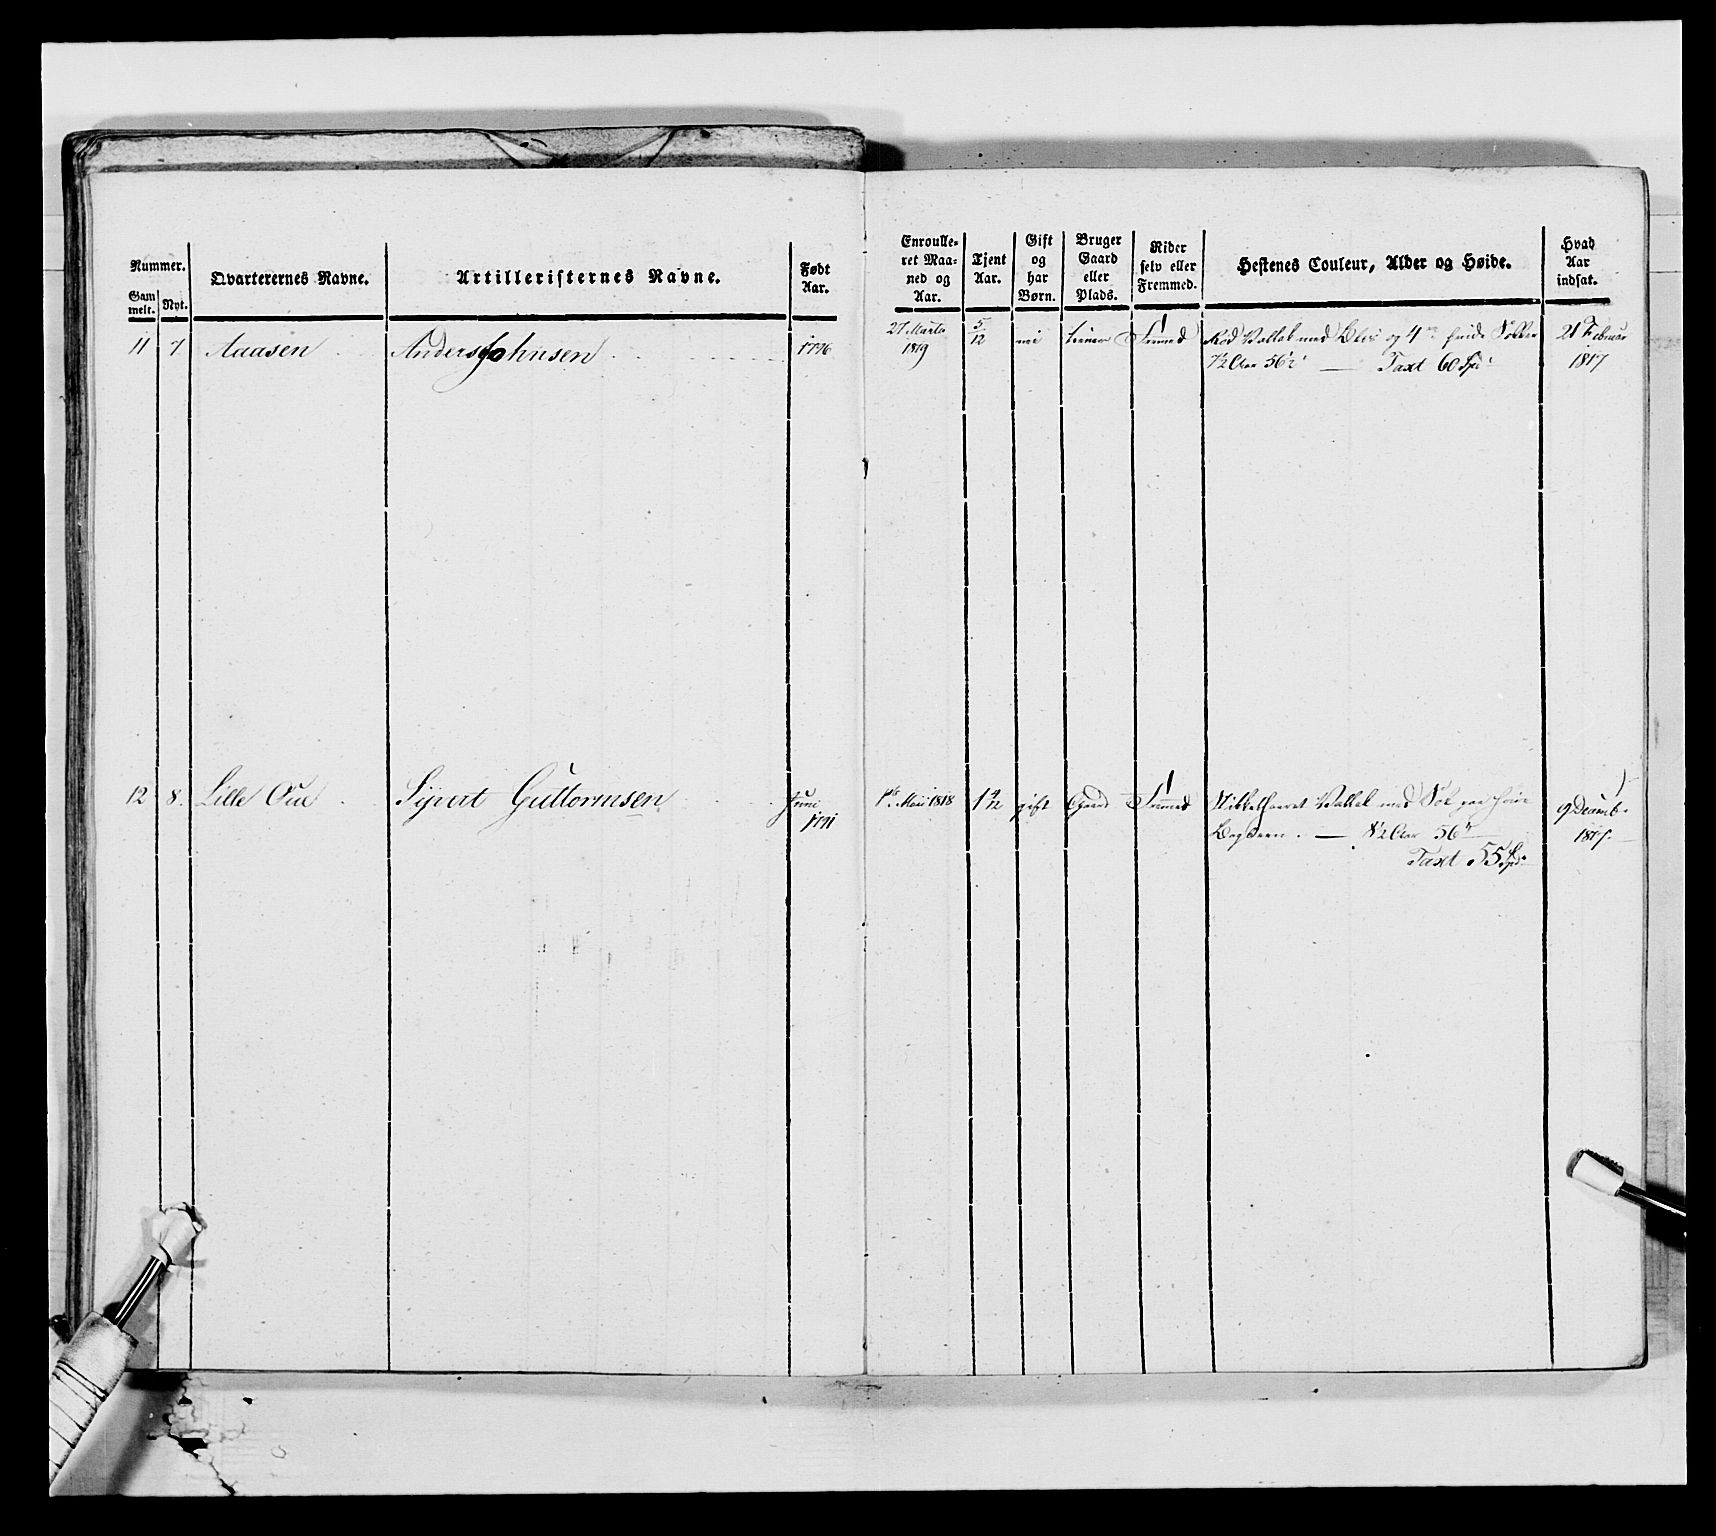 Nummer.
Gam
melt.
Nyt.
Qvarterernes Navne.
Artilleristernes Navne.
Født
Aar.
Enroulle-
ret Maa-
ned og
Aar.
Tjent
Aar.
Gift
og
har
Børn.
Bruger
Gaard
eller
Plads.
Rider
selv eller
Fremmed.
Hestenes Couleur, Alder og Høide.
Hvad
Aar
indsat.
11 7 Aaasen Anders Johnsen 1796
27 Marts
1819
5/12
nei
tiener
1
Fremmed
Rød Vallak med Blis og 4re hvide Sokker
7½ Aar 56½" — Taxt 60 Spd
21 Februar
1817
12 8. Lille Oue Sijvert Guttormsen Juni
1791
1te Mai 1818 1 4/12 gift Gaard
1
Fremmed
Vallak med Sok paa høire
Bagbeen. — 8½ Aar 56"
Taxt 55 Spd.
9 Decemb.
1817.